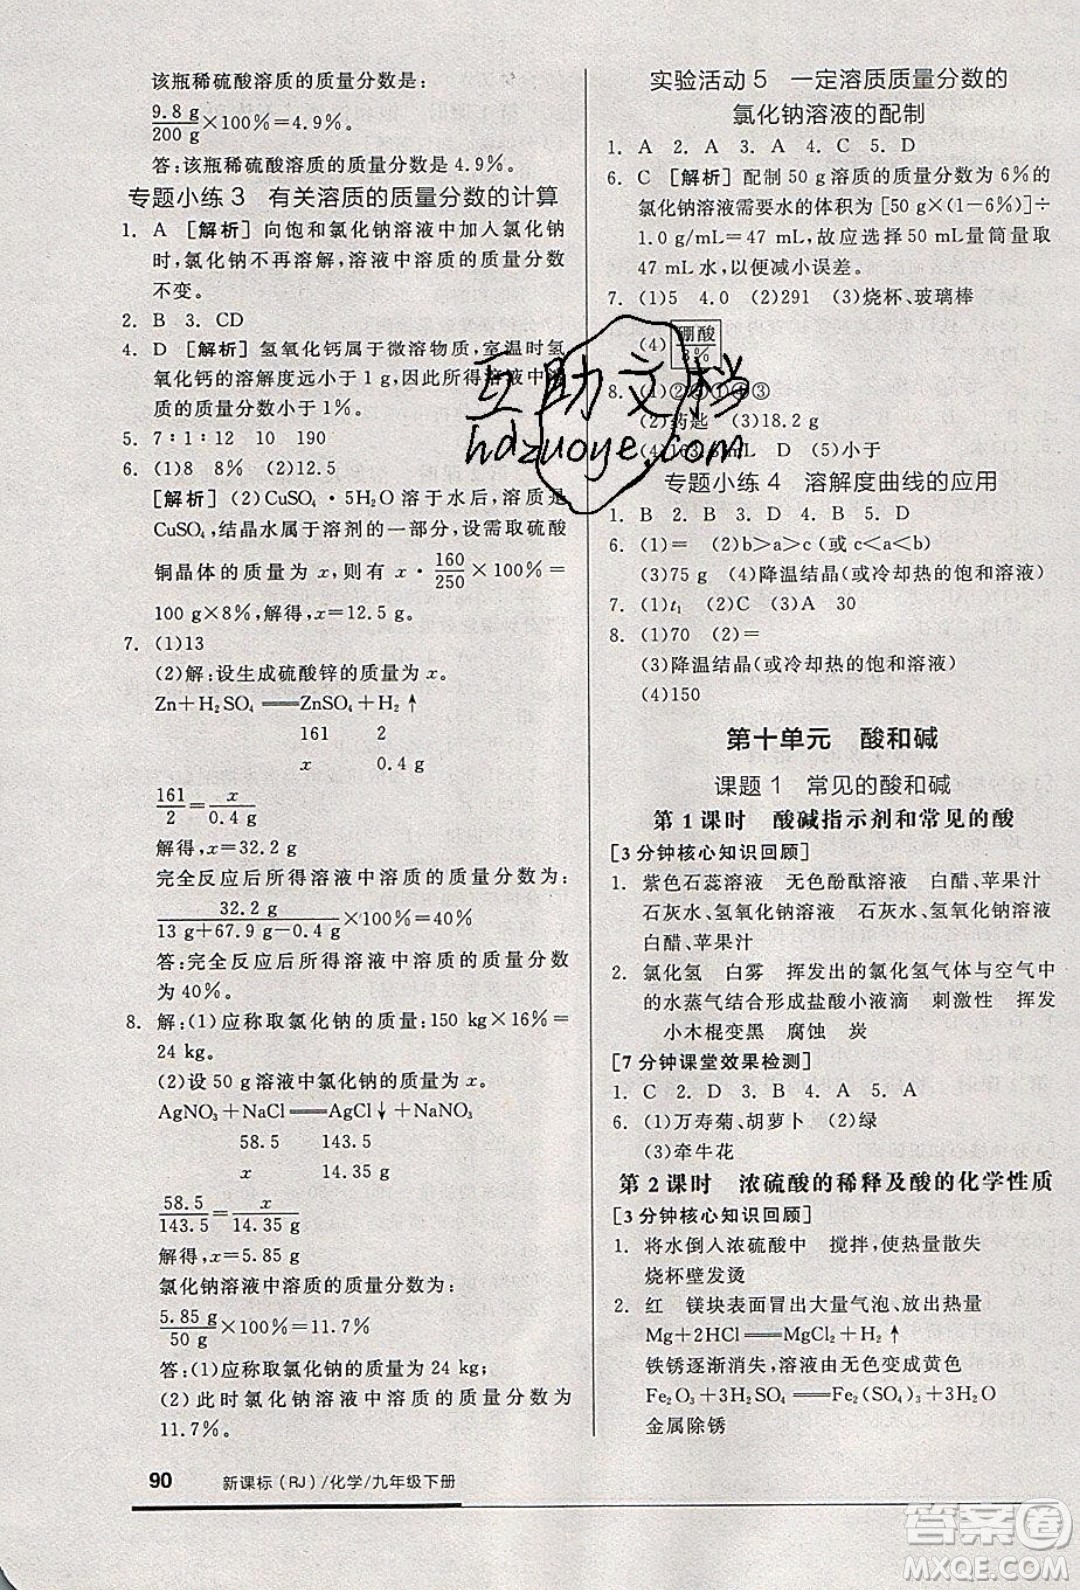 该瓶稀硫酸溶质的质量分数是:
9.8 g/200 g×100%=4.9%。
答:该瓶稀硫酸溶质的质量分数是 4.9%。
专题小练 3 有关溶质的质量分数的计算
1. A [解析] 向饱和氯化钠溶液中加入氯化钠
时,氯化钠不再溶解,溶液中溶质的质量分数
不变。
2. B 3. CD
4. D [解析] 氢氧化钙属于微溶物质,室温时氢
氧化钙的溶解度远小于 1 g,因此所得溶液中溶
质的质量分数小于 1%。
5. 7∶1∶12 10 190
6. (1)8 8% (2)12.5
[解析] (2)CuSO₄·5H₂O 溶于水后,溶质是
CuSO₄,结晶水属于溶剂的一部分,设需取硫酸
铜晶体的质量为 x,则有 x·160/250×100%=
100 g×8%,解得,x=12.5 g。
7. (1)13
(2)解:设生成硫酸锌的质量为 x。
Zn+H₂SO₄══ZnSO₄+H₂↑
161 2
x 0.4 g
161/2=x/0.4 g
解得,x=32.2 g
完全反应后所得溶液中溶质的质量分数为:
32.2 g/13 g+67.9 g-0.4 g×100%=40%
答:完全反应后所得溶液中溶质的质量分数
为 40%。
8. 解:(1)应称取氯化钠的质量:150 kg×16%=
24 kg。
(2)设 50 g溶液中氯化钠的质量为 x。
AgNO₃+NaCl══AgCl↓+NaNO₃
58.5 143.5
x 14.35 g
58.5/143.5=x/14.35 g
解得,x=5.85 g
氯化钠溶液中溶质的质量分数为:
5.85 g/50 g×100%=11.7%
答:(1)应称取氯化钠的质量为 24 kg;
(2)此时氯化钠溶液中溶质的质量分数为
11.7%。
实验活动 5 一定溶质质量分数的
氯化钠溶液的配制
1. A 2. D 3. A 4. C 5. D
6. C [解析] 配制 50 g 溶质的质量分数为 6%的
氯化钠溶液需要水的体积为[50 g×(1-6%)]÷
1.0 g/mL=47 mL,故应选择 50 mL 量筒量取
47 mL 水,以便减小误差。
7. (1)5 4.0 (2)291 (3)烧杯、玻璃棒
(4) 硼酸 3%
8. (1)
(2)药匙 (3)18.2 g
mL D (5)小于
专题小练 4 溶解度曲线的应用
1. B 2. B 3. D 4. B 5. D
6. (1)= (2)b>a>c(或 c<a<b)
(3)75 g (4)降温结晶(或冷却热的饱和溶液)
7. (1)t₁ (2)C (3)A 30
8. (1)70 (2)=
(3)降温结晶(或冷却热的饱和溶液)
(4)150
第十单元 酸和碱
课题 1 常见的酸和碱
第 1 课时 酸碱指示剂和常见的酸
[3 分钟核心知识回顾]
1. 紫色石蕊溶液 无色酚酞溶液 白醋、苹果汁
石灰水、氢氧化钠溶液 石灰水、氢氧化钠溶液
白醋、苹果汁
2. 氯化氢 白雾 挥发出的氯化氢气体与空气中
的水蒸气结合形成盐酸小液滴 刺激性 挥发
小木棍变黑 腐蚀 炭
[7 分钟课堂效果检测]
1. C 2. D 3. B 4. A 5. A
6. (1)万寿菊、胡萝卜 (2)绿
(3)牵牛花
第 2 课时 浓硫酸的稀释及酸的化学性质
[3 分钟核心知识回顾]
1. 将水倒入浓硫酸中 搅拌,使热量散失
烧杯壁发烫
2. 红 镁块表面冒出大量气泡、放出热量
Mg+2HCl══MgCl₂+H₂↑
铁锈逐渐消失,溶液由无色变成黄色
Fe₂O₃+3H₂SO₄══Fe₂(SO₄)₃+3H₂O
金属除锈
90 新课标(RJ)/化学/九年级下册
互助文档
hdzuoye.com
答案圈
MXQE.COM